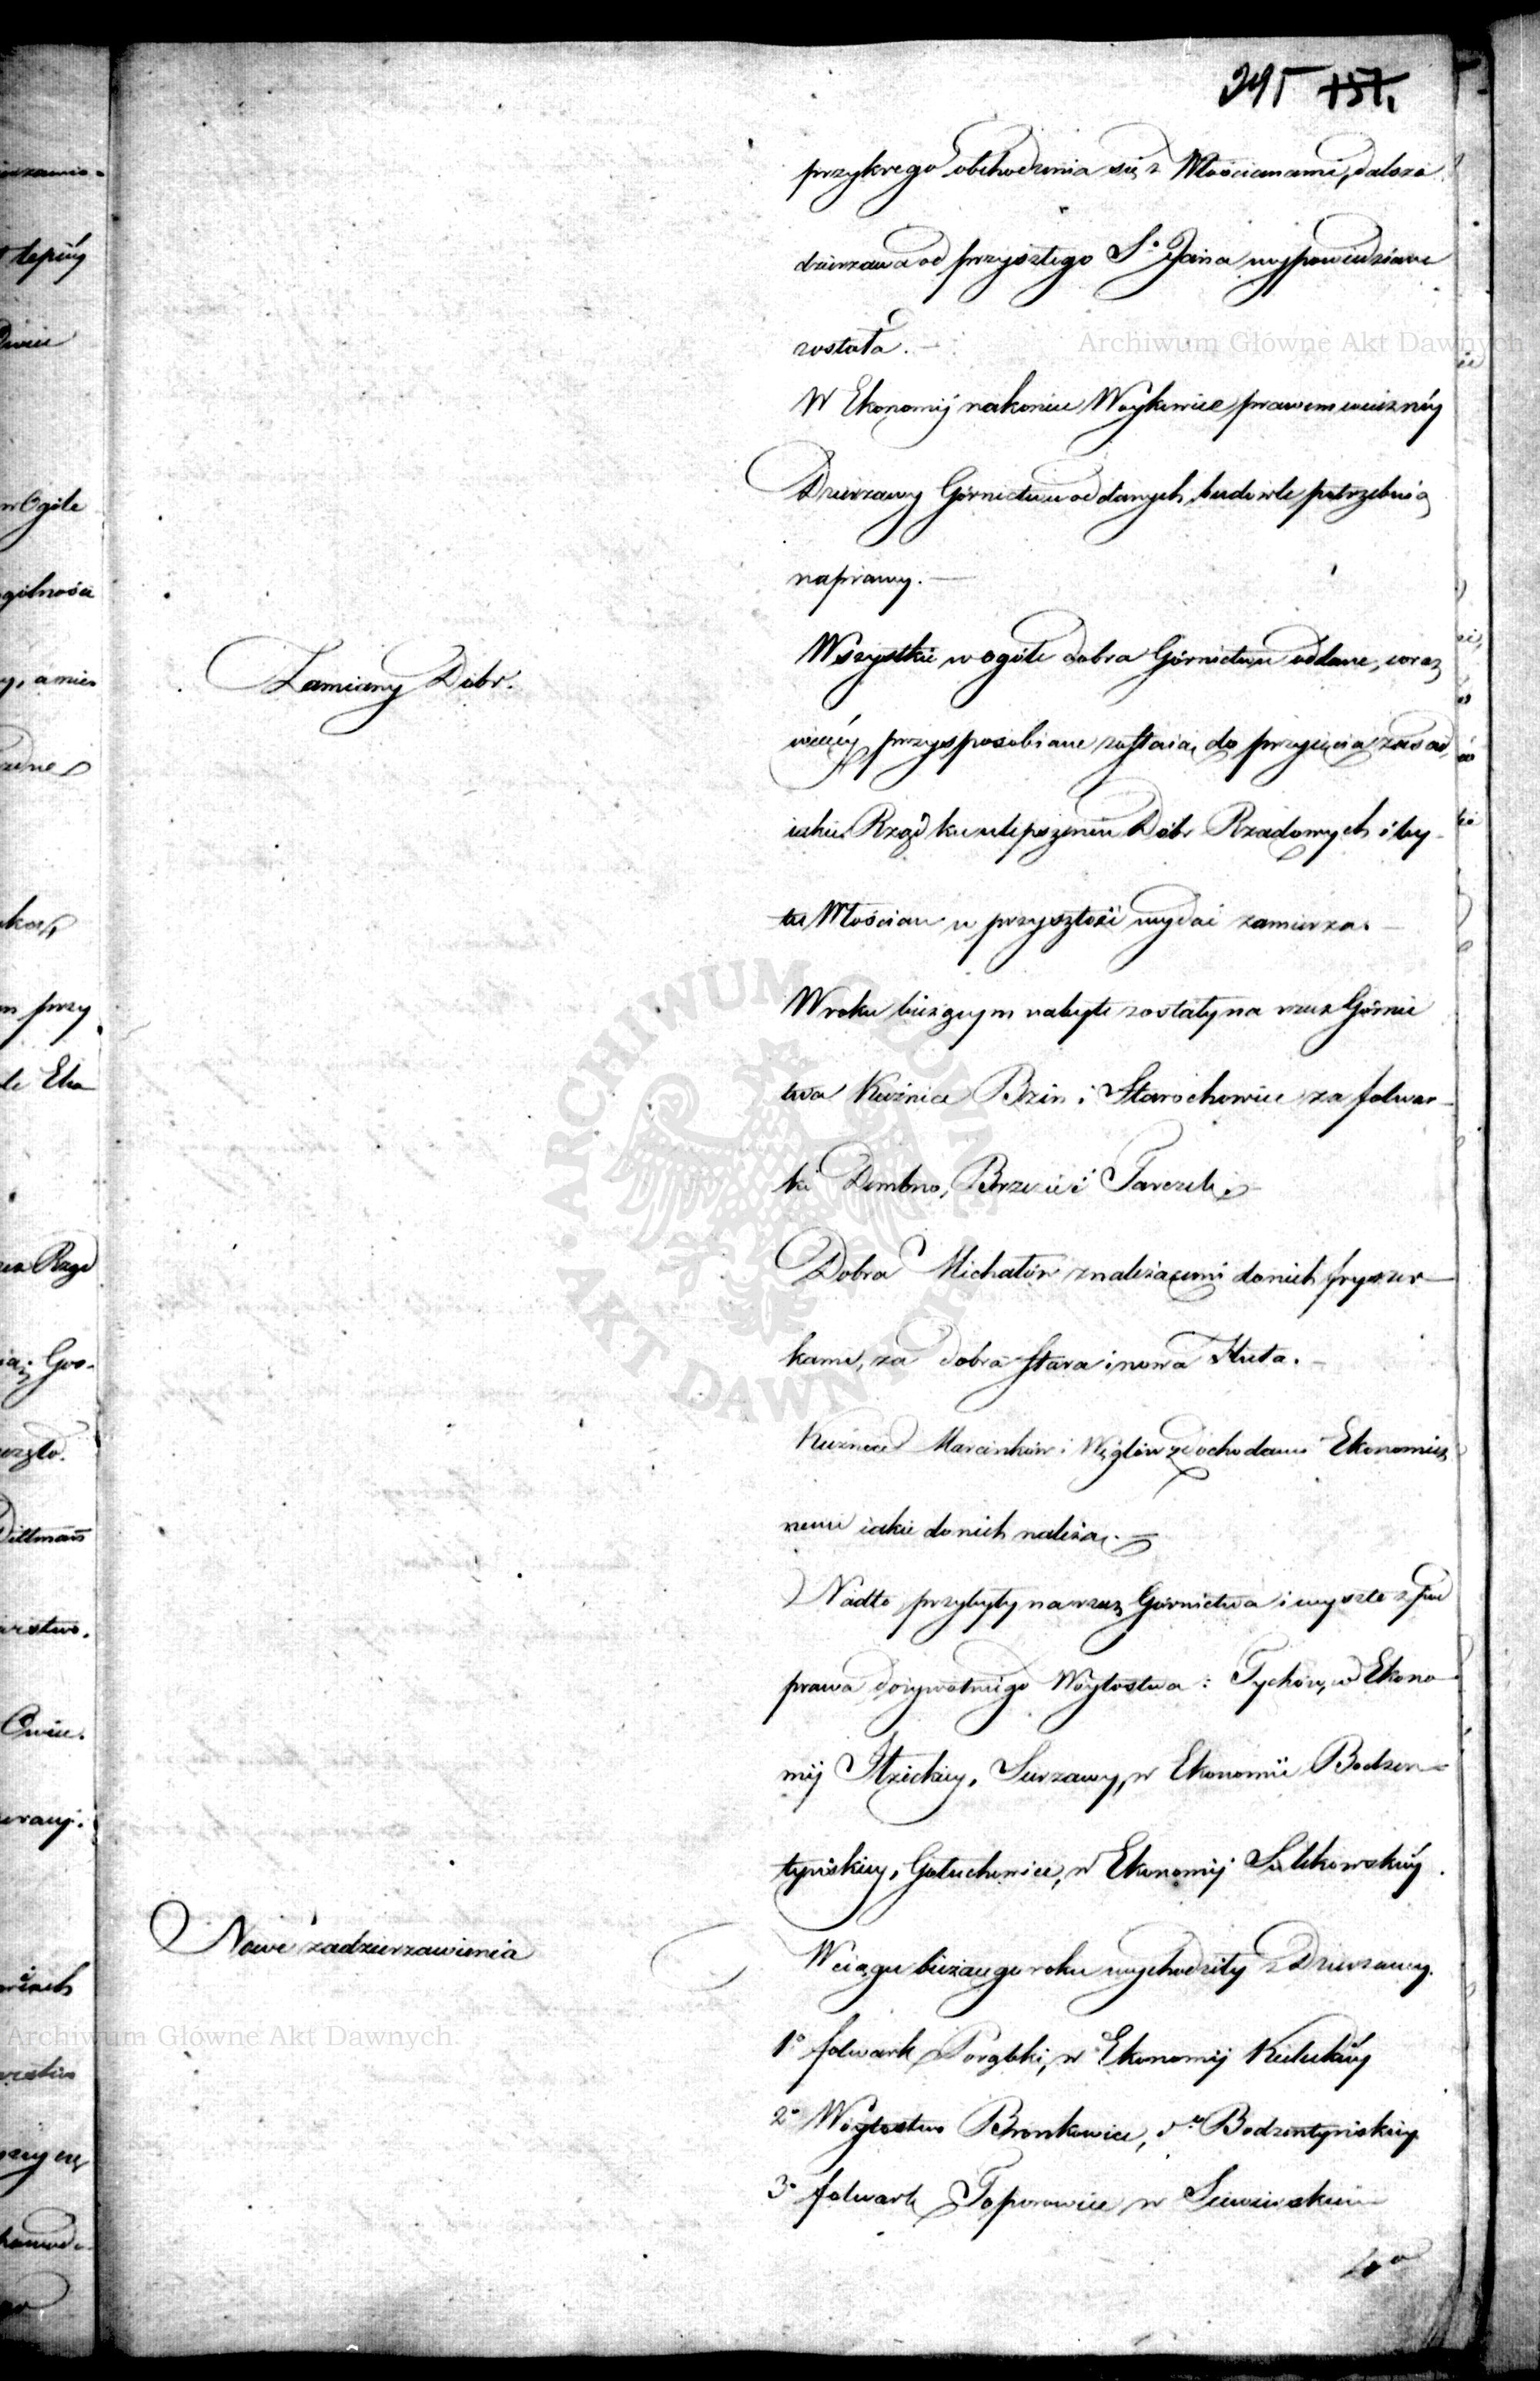 295 157.
przykrego obchodzenia się z Włościanami, dalsza
dzierzawa od przyszłego S.º Jana wypowiedziana
została. —
W Ekonomij nakoniec Woykowice prawem wieczney
Dzierzawy Górnictwu oddanych, budowle potrzebuią
naprawy. —
Zamiany Dóbr.
Wszystkie w ogóle dobra Górnictwu oddane, coraz
więcéy przysposobiane zostaią do przyięcia zasad,
iakie Rząd ku ulepszeniu Dóbr Rządowych i by-
tu Włościan w przyszłości wydać zamierza. —
W roku bieżącym nabyte zostały na rzecz Górnic
twa Kuźnice Bzin i Starachowice za folwar-
ki Dembno, Brzezie i Tarczek. —
Dobra Michałów z należącemi do nich fryszer-
kami, za dobra Stara i nowa Huta. —
Kuźnice Marcinków i Węglów z dochodami Ekonomicz
nemi iakie do nich należą. —
Nadto przybyły na rzecz Górnictwa i wyszłe z pod
prawa dożywotniego Woytostwa: Tychów, w Ekono-
mij Iłzeckiey, Sierzawy, w Ekonomii Bodzen-
tyńskiey, Gołuchowice, w Ekonomij Sułkowskiéy.
Nowe zadzierzawienia
W ciągu bieżącego roku wychodziły z Dzierzawy.
1º folwark Porąbki, w Ekonomij Kieleckiéy
2º Woytostwo Bronkowice, d.º Bodzentyńskiey
3º folwark Toporowice w Siewierskiem
4º
Archiwum Główne Akt Dawnych
ARCHIWUM GŁÓWNE AKT DAWNYCH
Archiwum Główne Akt Dawnych